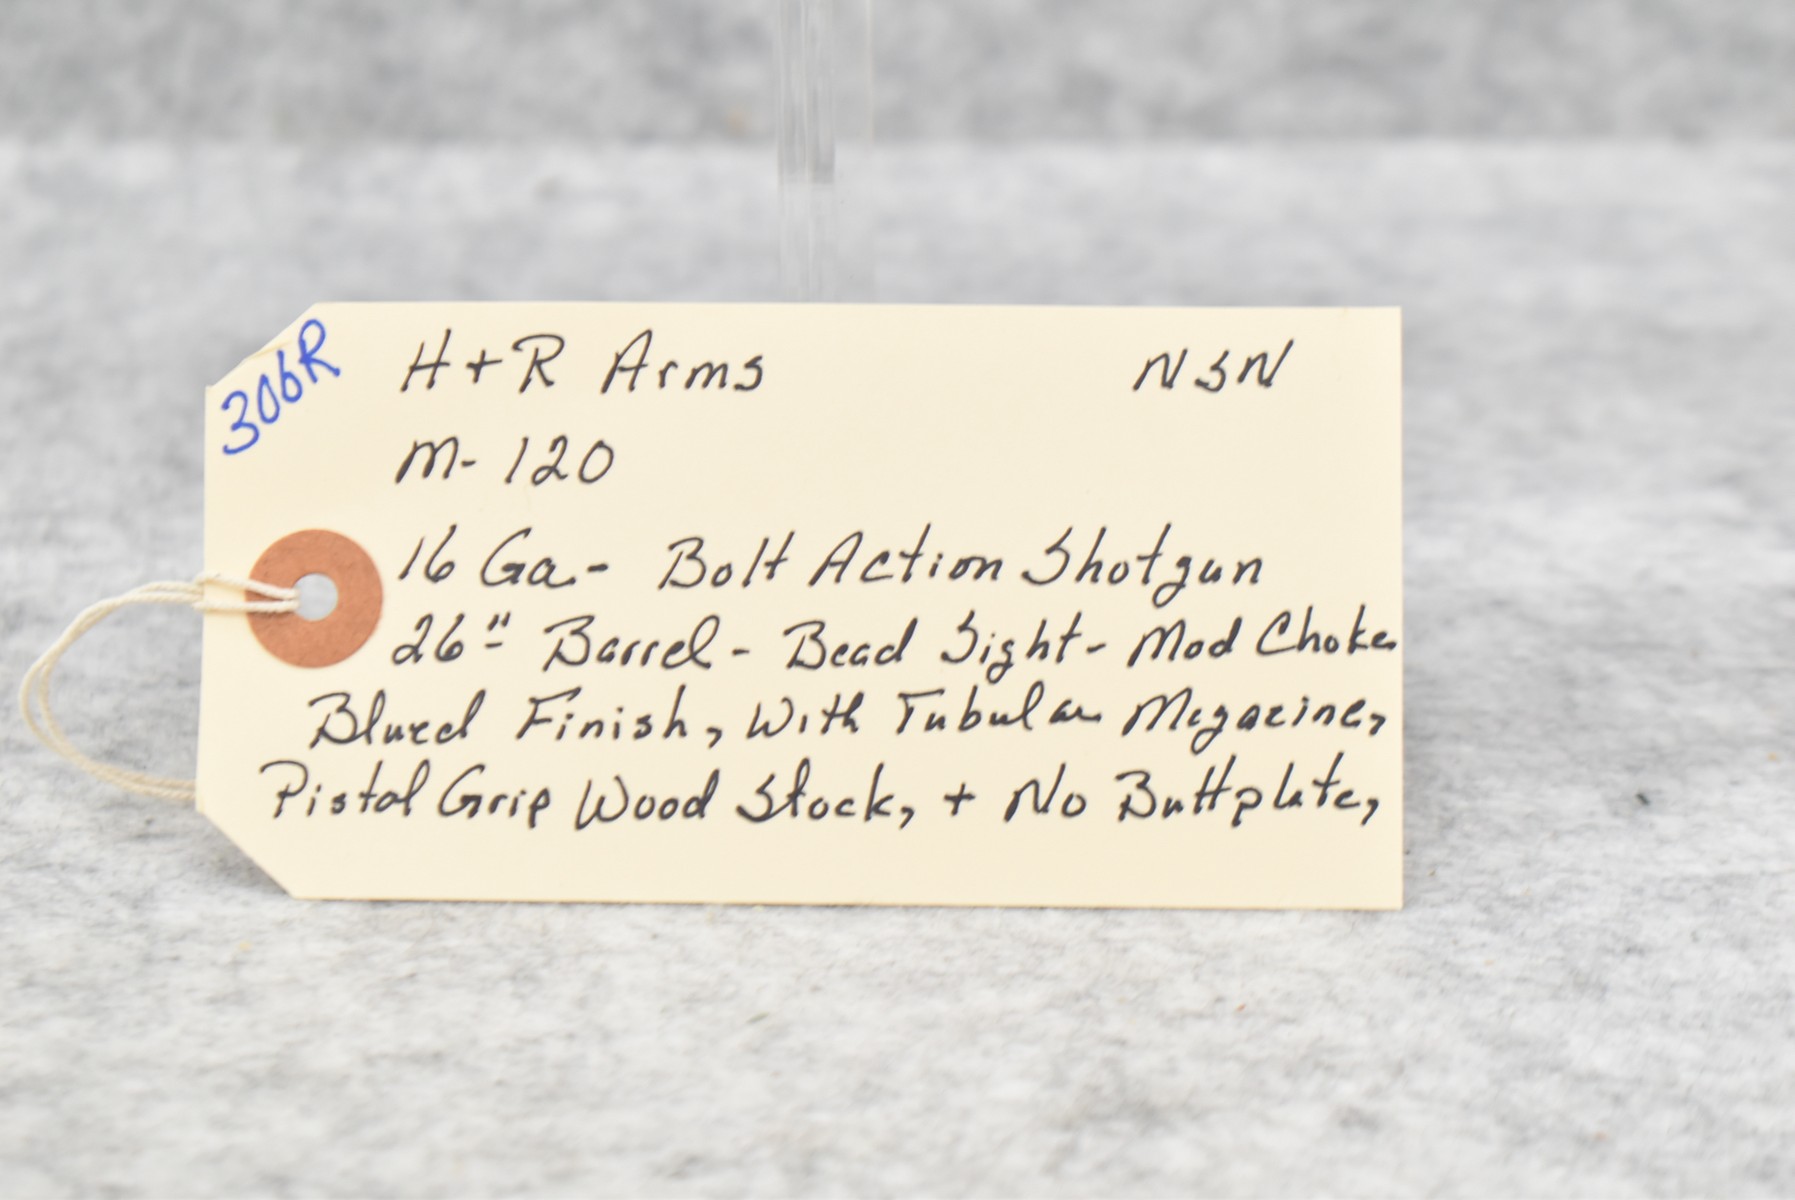 306R
H+R Arms NSN
M-120
16 Ga.- Bolt Action Shotgun
26" Barrel - Bead Sight - Mod Choke
Blued Finish, With Tubular Magazine,
Pistol Grip Wood Stock, + No Buttplate,